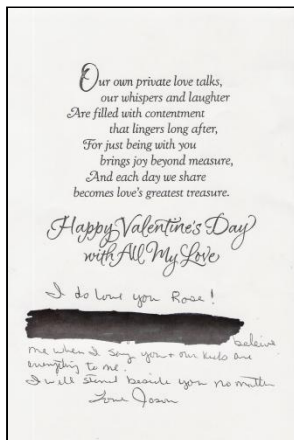 Our own private love talks,
our whispers and laughter
Are filled with contentment
that lingers long after,
For just being with you
brings joy beyond measure,
And each day we share
becomes love's greatest treasure.
Happy Valentine's Day
with All My Love
I do love you Rose!
beleive
me when I say you + our kids are
everything to me.
I will stand beside you no matter
Love Jason